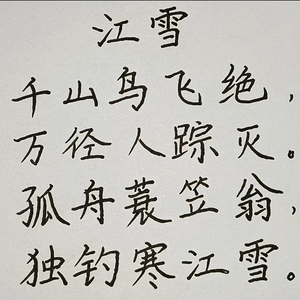 江雪
千山鸟飞绝，
万径人踪灭。
孤舟蓑笠翁，
独钓寒江雪。